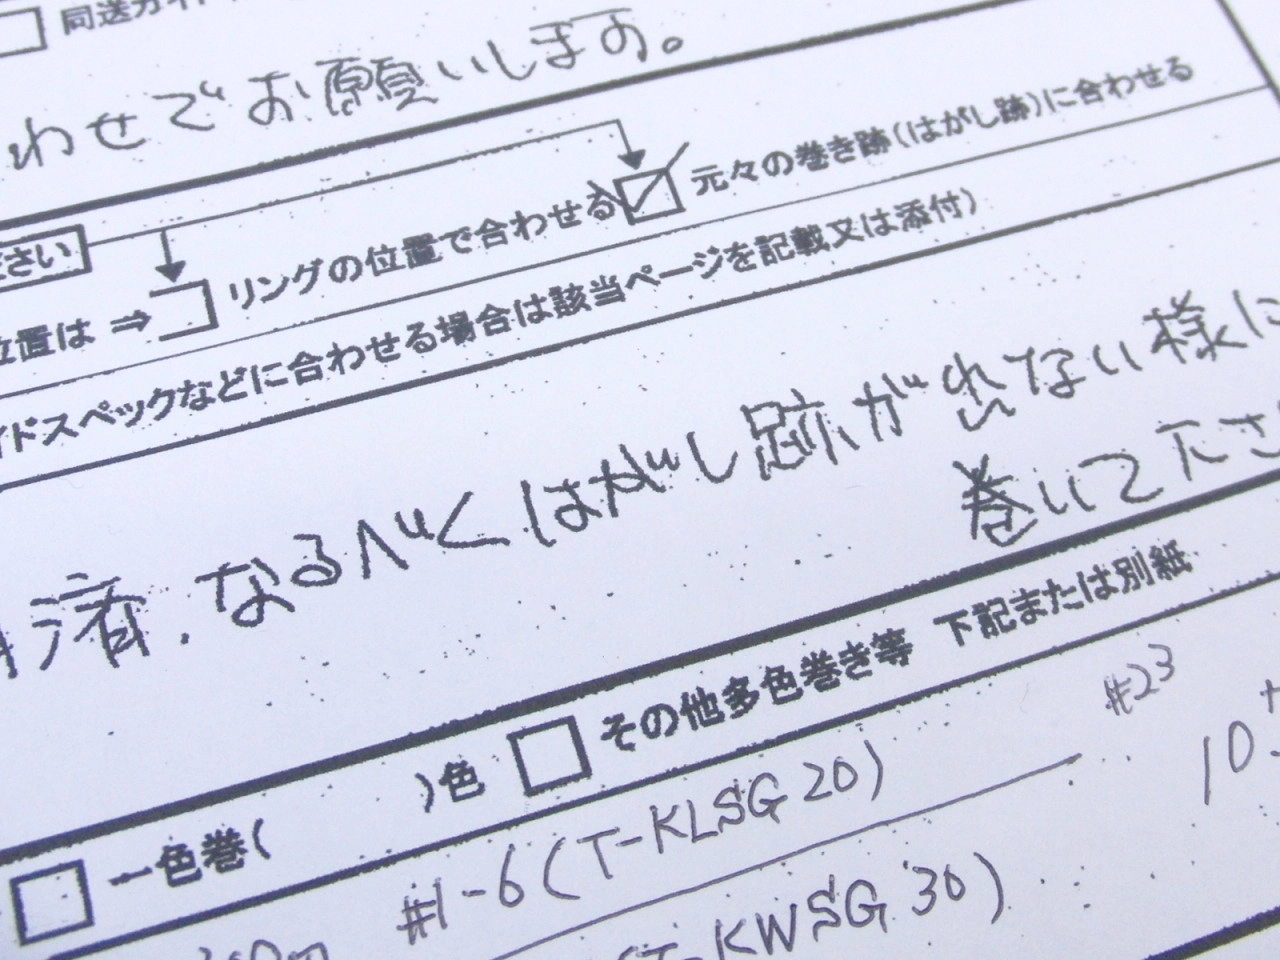 同送ガイド
わせでお願いします。
元々の巻き跡(はがし跡)に合わせる
ださい
位置は ⇒ リングの位置で合わせる
イドスペックなどに合わせる場合は該当ページを記載又は添付)
済. なるべくはがし跡が出ない様に
巻いて下さ
一色巻( )色 その他多色巻き等 下記または別紙
#1-6(T-KLSG 20) #23
T-KWSG 30)